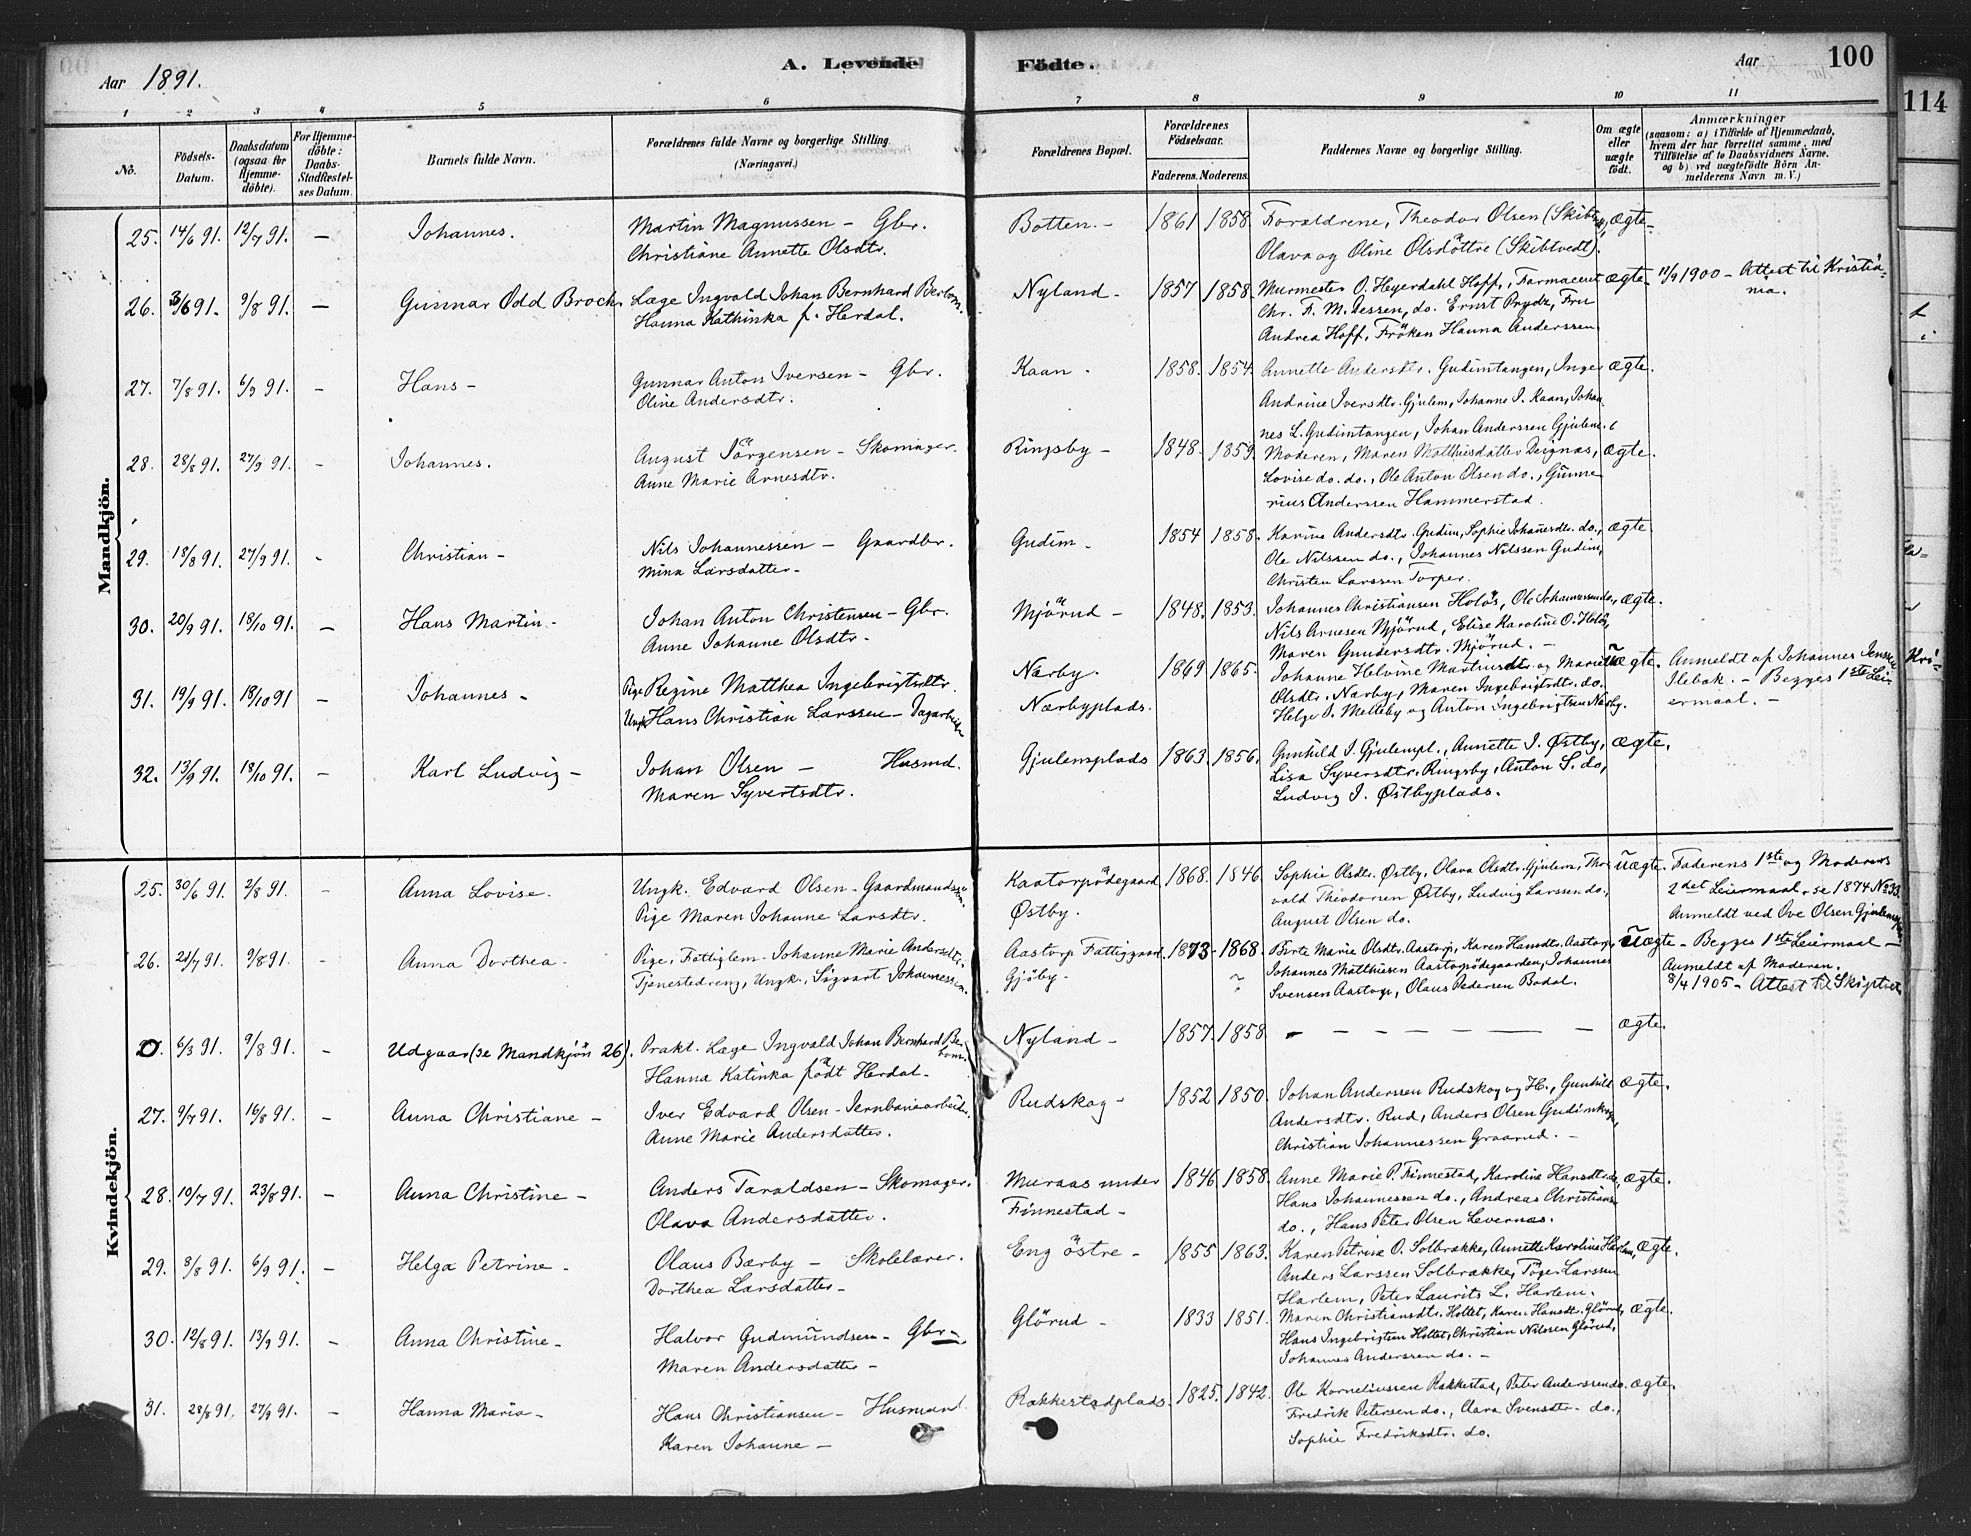 Aar 1891.
A. Levende
Födte.
Aar
100
114
1 2 3 4 5 6 7 8 9 10 11
No.
Födsels-Datum.
Daabsdatum (ogsaa for Hjemme-döbte).
For Hjemme-döbte: Daabs-Stadfæstel-ses Datum.
Barnets fulde Navn.
Forældrenes fulde Navne og borgerlige Stilling.
(Næringsvei.)
Forældrenes Bopæl.
Forældrenes Födselsaar.
Faderens. Moderens.
Faddernes Navne og borgerlige Stilling.
Om ægte eller uægte födt.
Anmærkninger
(saasom: a) i Tilfælde af Hjemmedaab,
hvem der har forrettet samme, med
Tilföielse af to Daabsvidners Navne.
og b) ved uægtefödte Börn An-
melderens Navn m. V.)
Mandkjön.
25. 14/6 91. 12/7 91. – Johannes. Martin Magnussen – Gbr. Botten. – 1861 1858. Forældrene, Theodor Olsen (Skibtvedt), ægte –
Christiane Annette Olsdtr. Olava og Oline Olsdöttre (Skibtvedt).
26. 3/6 91. 9/8 91. – Gunnar Odd Broch. Læge Ingvald Johan Bernhard Berbom. Nyland – 1857 1858. Murmester O. Heyerdahl Hoff, Farmaceut ægte – 11/9 1900 – Attest til Kristia-
nia.
Hanna Kathinka f. Herdal. Chr. F. M. Dessen, do. Ernst Prydz, Fru
Andrea Hoff, Fröken Hanna Anderssen.
27. 7/8 91. 6/9 91. – Hans – Gunnar Anton Iversen – Gbr. Kaan – 1858. 1854. Annette Andersdtr. Gudimtangen, Inger ægte.
Oline Andersdtr. Andrine Iversdtr. Gjulem, Johanne I. Kaan, Johan-
nes L. Gudimtangen, Johan Anderssen Gjulem.
28. 28/8 91. 27/9 91. – Johannes. August Jörgensen – Skomager. Ringsby – 1848. 1859. Moderen, Maren Matthisdatter Deignæs, ægte.
Anne Marie Arnesdtr. Lovise do. do., Ole Anton Olsen do., Gunne-
rius Anderssen Hammerstad.
29. 18/8 91. 27/9 91. – Christian – Nils Johannessen – Gaardbr. Gudim – 1854 1858. Karine Andersdtr. Gudim, Sophie Johannesdtr. do., ægte
Mina Larsdatter – Ole Nilssen do., Johannes Nilssen Gudim,
Christen Larssen Torper.
30. 20/9 91. 18/10 91. – Hans Martin – Johan Anton Christensen – Gbr. Mjörud – 1848. 1853. Johannes Christiansen Holös, Ole Johannessen do., ægte.
Anne Johanne Olsdtr – Nils Arnesen Mjörud, Elise Karoline O. Holös,
Maren Gundersdtr. Mjörud. –
31. 19/9 91. 18/10 91 – Johannes – Pige Regine Matthea Ingebrigtsdtr. Nærby. 1869 1865. Johanne Helvine Martinsdtr. og Mariethe uægte. Anmeldt af Johannes Jensen
Ungk. Hans Christian Larssen – Dagarbeider Nærbyplads. Olsdtr. Nærby, Maren Ingebrigtsdtr. do. Ilebak. – Begges 1ste Lei-
Helge I. Melleby og Anton Ingebrigtsen Nærby. ermaal. –
32. 13/9 91. 18/10 91. – Karl Ludvig – Johan Olsen – Husmd. Gjulemplads 1863. 1856. Gunhild I. Gjulempl., Annette I. Østby, ægte.
Maren Syvertsdtr. Lisa Syversdtr. Ringsby, Anton S. do,
Ludvig I. Østbyplads.
Kvindekjön.
25. 30/6 91. 2/8 91. – Anna Lovise. Ungk. Edvard Olsen – Gaardmandssøn. Kaatorpödegaard 1868. 1846. Sophie Olsdtr. Østby, Olava Olsdtr. Gjulem, Tho- uægte. Faderens 1ste og Moderens
Pige Maren Johanne Larsdtr. Østby. vald Theodorsen Østby, Ludvig Larssen do., 2det Leiermaal, se 1874 No 33.
August Olsen do. Anmeldt ved Ove Olsen
26. 21/7 91. 9/8 91. – Anna Dorthea. Pige, Fattiglem – Johanne Marie Andersdtr. Aastorp Fattiggaard. 1873 – 1868. Berte Marie Olsdtr. Aastorp, Karen Hansdtr. Aastorp, uægte – Begges 1ste Leiermaal –
Tjenestedreng, Ungk. Sigvart Johannessen. Gjöby – ~ Johannes Matthisen Aastorpödegaarden, Johannes Anmeldt af Moderen.
Svensen Aastorp, Olaus Pedersen Bodal. 8/4 1905 – Attest til Skiptvet
0. 6/3 91. 9/8 91. – Udgaar (se Mandkjön 26). Prakt. Læge Ingvald Johan Bernhard Ber-
bom. Nyland – 1857. 1858. – – – – – – – ægte.
Hanna Katinka födt Herdal –
27. 9/7 91. 16/8 91. – Anna Christiane – Iver Edvard Olsen – Jernbanearbeider. Rudskog – 1852 1850. Johan Anderssen Rudskog og H., Gunhild ægte.
Anne Marie Andersdatter. Andersdtr. Rud, Anders Olsen Gudimskog,
Christian Johannessen Graarud. –
28. 10/7 91. 23/8 91. – Anna Christine – Anders Taraldsen – Skomager. Muraas under 1846 1858. Anne Marie P. Finnestad, Karoline Hansdtr. do, ægte.
Olava Andersdatter. Finnestad – Hans Johannessen do., Andreas Christiansen
do., Hans Peter Olsen Levernæs.
29. 8/8 91. 6/9 91. – Helga Petrine – Olaus Bærby – Skolelærer. Eng östre – 1855 1863. Karen Petrine O. Solbrække, Annette Karoline Harlem, ægte.
Dorthea Larsdatter – Anders Larssen Solbrække, Töger Larssen
Harlem, Peter Laurits L. Harlem.
30. 12/8 91. 13/9 91. – Anna Christine – Halvor Gudmundsen – Gbr – Glörud – 1833 1851. Maren Christiansdtr. Holtet, Karen Hansdtr. Glörud, ægte.
Maren Andersdatter – Hans Ingebrigtsen Holtet, Christian Nilssen Glörud,
Johannes Anderssen do. –
31. 28/8 91. 27/9 91. – Hanna Maria – Hans Christiansen – Husmand. Rakkestadplads. 1825. 1842. Ole Korneliussen Rakkestad, Peter Anderssen do. ægte.
Karen Johanne – Fredrik Petersen do., Clara Svensdtr. do.,
Sophie Fredriksdtr. do.